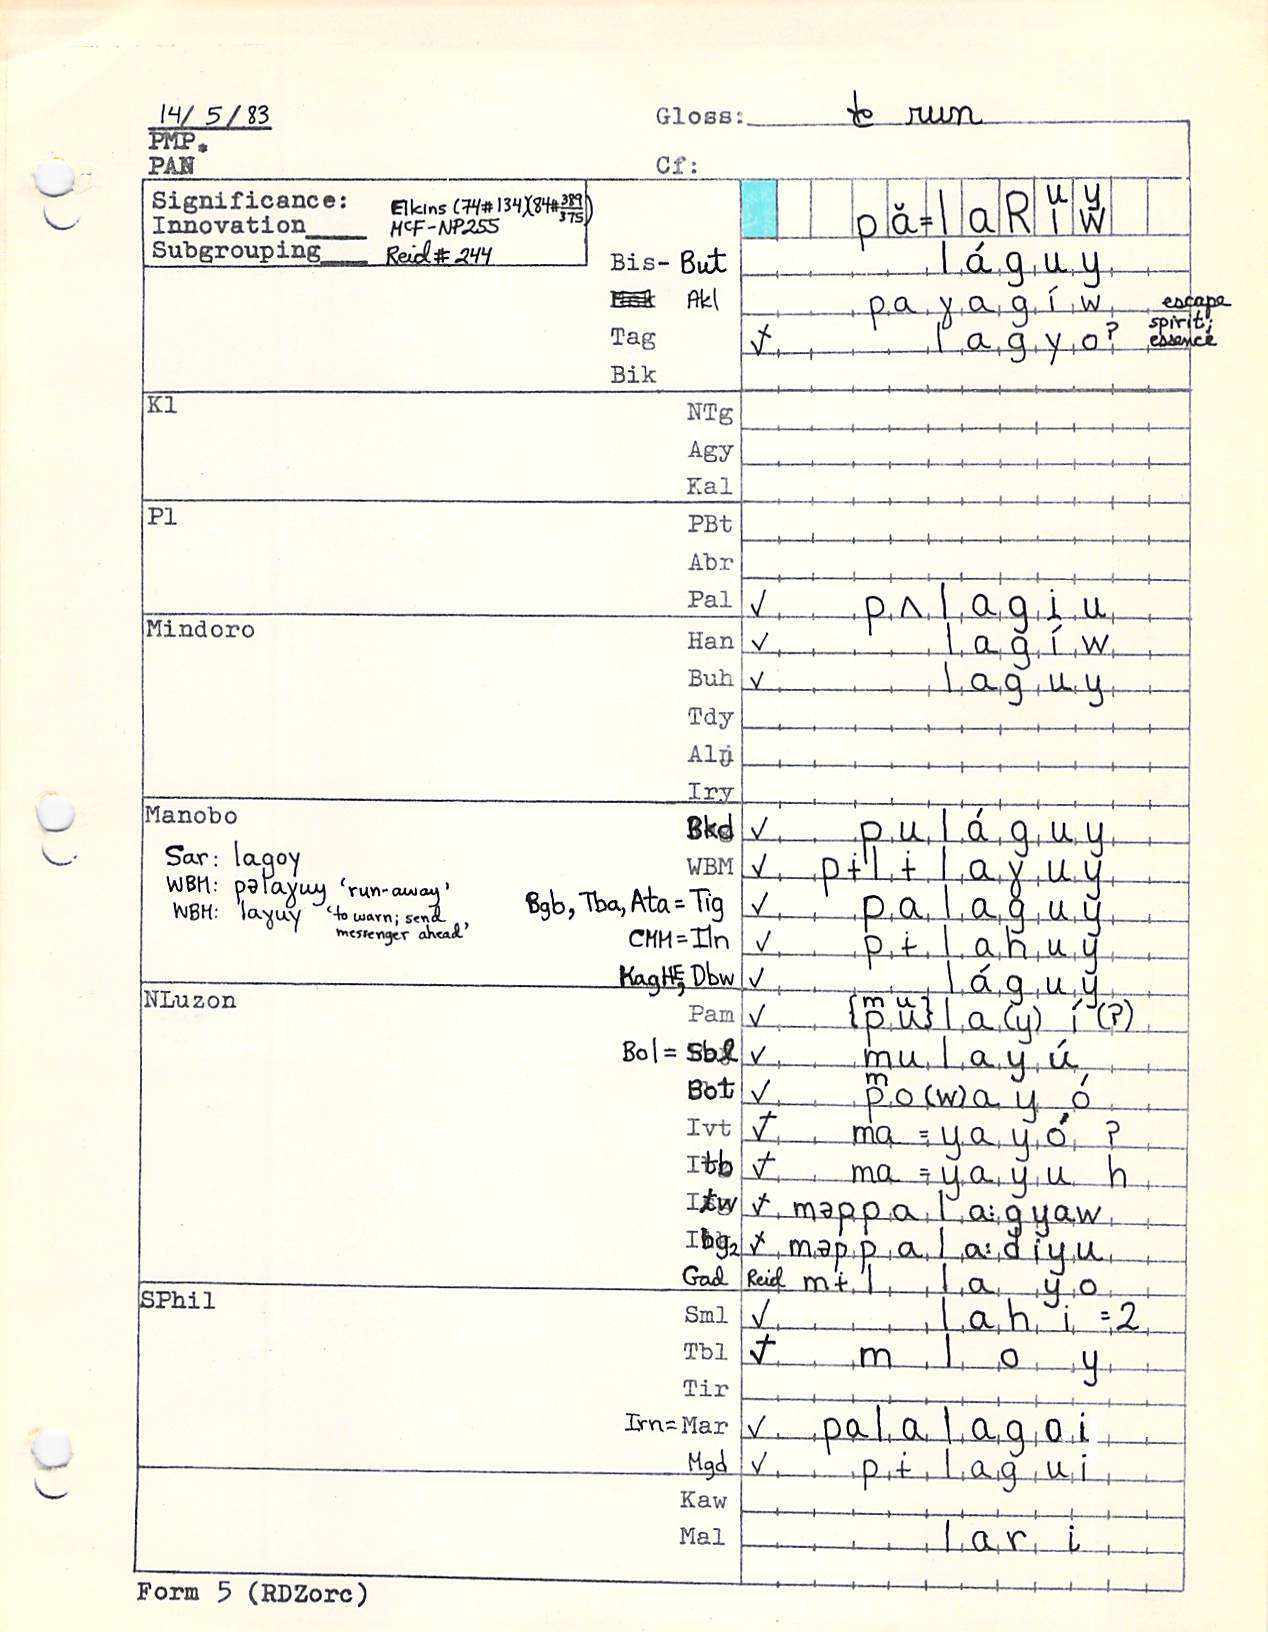 14/5/83 Gloss: to run
PMP.
PAN Cf:
Significance: Elkins (74#134)(84#389/375)
Innovation____ McF-NP255
Subgrouping____ Reid # 244
pă=laR uy / iw
Bis- But láguy
Akl payagíw escape
Tag lagyoʔ spirit; essence
Bik
Kl NTg
Agy
Kal
Pl PBt
Abr
Pal ✓ pʌlagiu
Mindoro Han ✓ lagíw
Buh ✓ laguy
Tdy
Ala
Iry
Manobo Bkd ✓ puláguy
Sar: lagoy WBM ✓ pɨlɨlaɣuy
WBM: pəlaɣuy 'run-away' Bgb, Tba, Ata = Tig ✓ palaguy
WBM: laɣuy 'to warn; send messenger ahead' CMM = Iln ✓ pɨlahuy
KagHE, Dbw ✓ láguy
NLuzon Pam ✓ {mu / pu}la(y)í(ʔ)
Bol = Sbl ✓ mulayú
Bot ✓ m / po(w)ayó
Ivt ma=yayóʔ
Itb ma=yayuh
Itw məppala:gyaw
Ibg₂ məppala:diyu
Gad Reid mɨllayo
SPhil Sml ✓ lahi=2
Tbl mloy
Tir
Irn = Mar ✓ palalagoi
Mgd ✓ pɨlagui
Kaw
Mal lari
Form 5 (RDZorc)